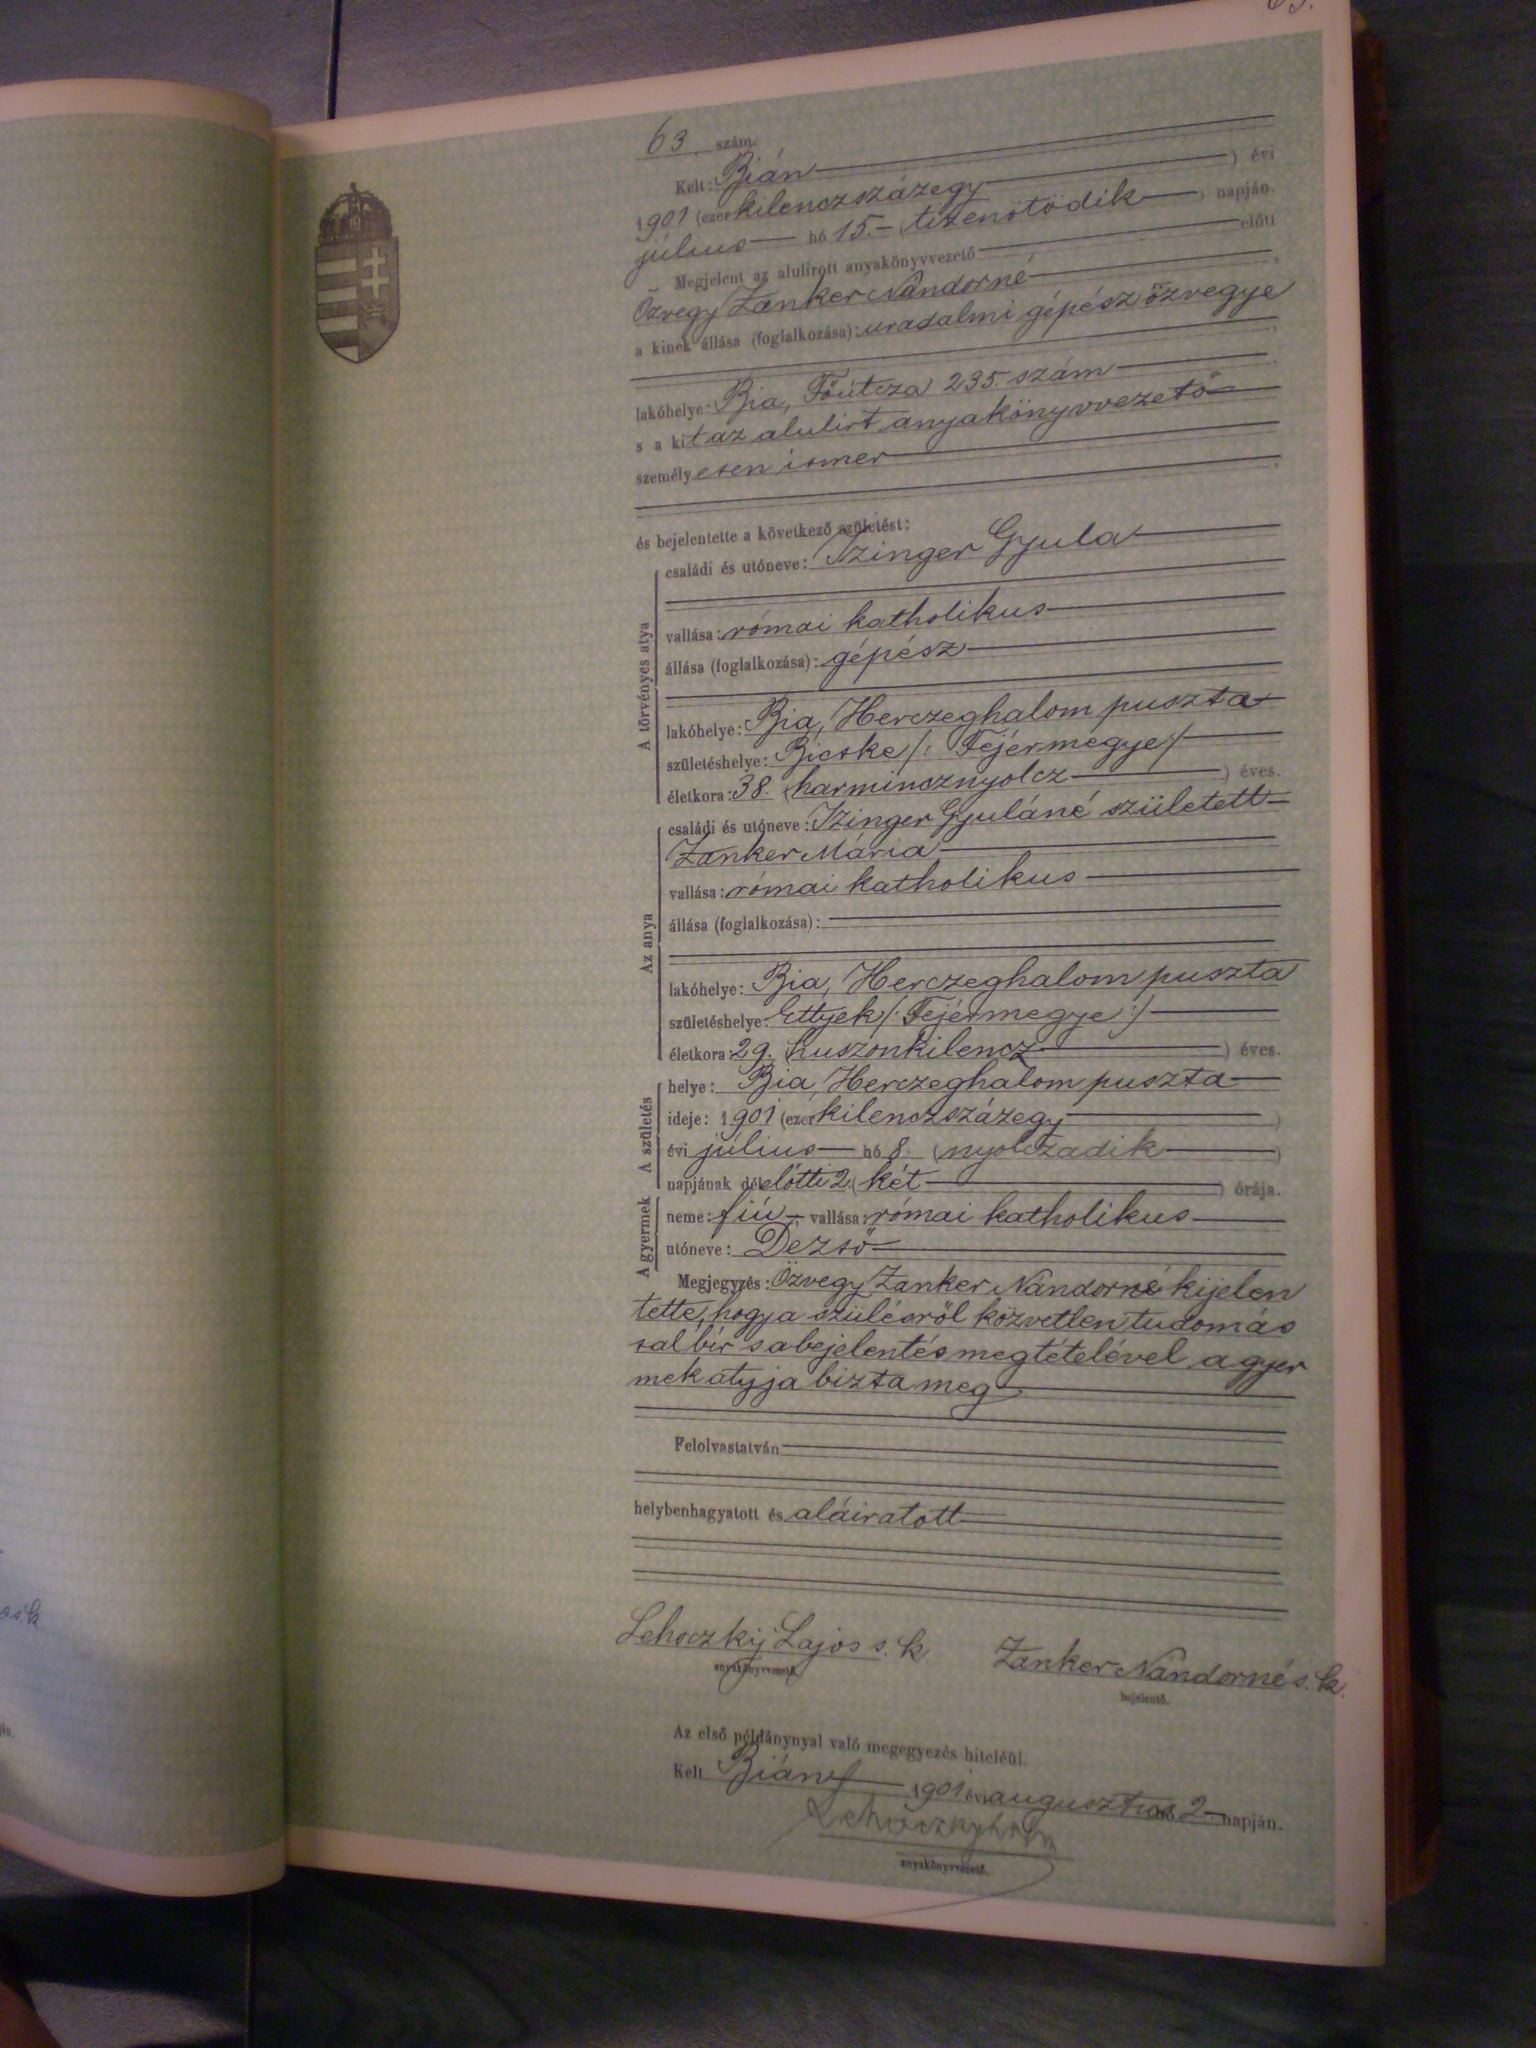 63 szám.
Kelt: Bián
1901 (ezer kilenczszázegy ) évi
július hó 15. (tizenötödik ) napján.
Megjelent az alulírott anyakönyvvezető előtt
Özvegy Zanker Nándorné
a kinek állása (foglalkozása): uradalmi gépész özvegye
lakóhelye: Bia, Főútcza 235. szám
s a kit az alulirt anyakönyvvezető
személyesen ismer
és bejelentette a következő születést:
A törvényes atya
családi és utóneve: Izinger Gyula
vallása: római katholikus
állása (foglalkozása): gépész
lakóhelye: Bia, Herczeghalom puszta
születéshelye: Bicske /: Fejérmegye :/
életkora: 38. (harmincznyolcz ) éves.
Az anya
családi és utóneve: Izinger Gyuláné született
Zanker Mária
vallása: római katholikus
állása (foglalkozása):
lakóhelye: Bia, Herczeghalom puszta
születéshelye: Ettyek /: Fejérmegye :/
életkora: 29. (huszonkilencz ) éves.
A születés
helye: Bia, Herczeghalom puszta
ideje: 1901 (ezer kilenczszázegy )
évi július hó 8. (nyolczadik )
napjának délelőtti 2. (két ) órája.
A gyermek
neme: fiú ; vallása: római katholikus
utóneve: Dezső
Megjegyzés: Özvegy Zanker Nándorné kijelen
tette, hogy a szülésről közvetlen tudomás
sal bír s a bejelentés megtételével a gyer
mek atyja bizta meg
Felolvastatván
helybenhagyatott és aláiratott
Lehoczky Lajos s. k. Zanker Nándorné s. k.
anyakönyvvezető. bejelentő.
Az első példánynyal való megegyezés hiteléül.
Kelt Bián 1901 évi augusztus hó 2 napján.
Lehoczky Lajos
anyakönyvvezető.